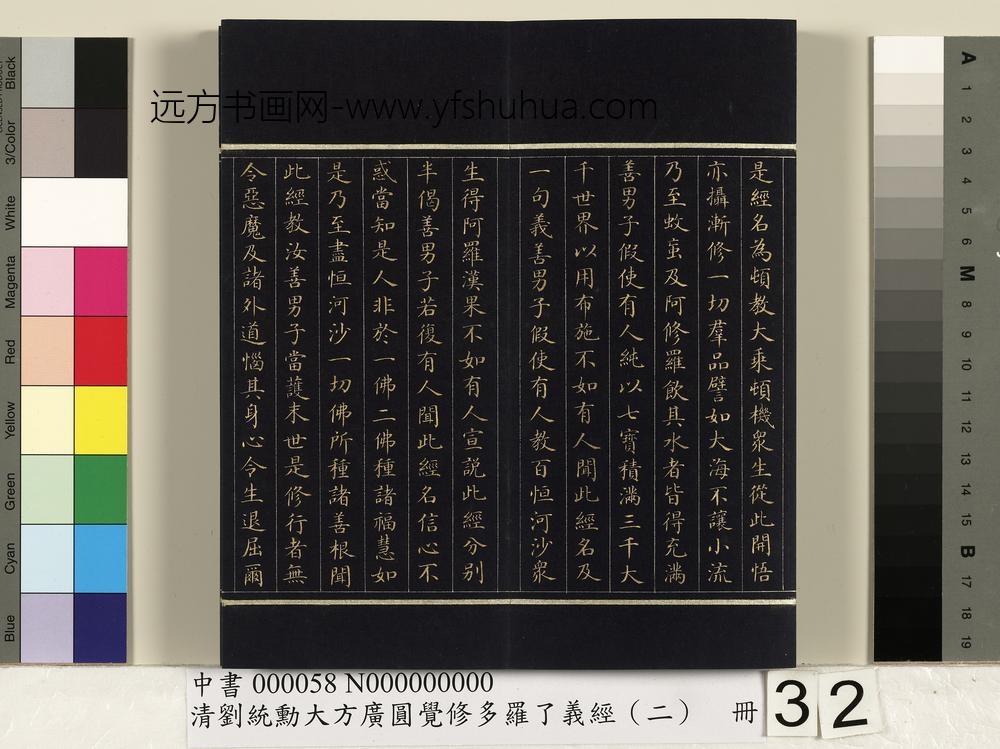 远方书画网-www.yfshuhua.com
是經名為頓教大乘頓機衆生從此開悟
亦攝漸修一切羣品譬如大海不讓小流
乃至蚊䖟及阿修羅飲其水者皆得充滿
善男子假使有人純以七寳積滿三千大
千世界以用布施不如有人聞此經名及
一句義善男子假使有人教百恒河沙衆
生得阿羅漢果不如有人宣説此經分别
半偈善男子若復有人聞此經名信心不
惑當知是人非於一佛二佛種諸福慧如
是乃至盡恒河沙一切佛所種諸善根聞
此經教汝善男子當護末世是修行者無
令惡魔及諸外道惱其身心令生退屈爾
中書 000058 N000000000
清劉統勳大方廣圓覺修多羅了義經（二） 冊 32
Black
3/Color
White
Magenta
Red
Yellow
Green
Cyan
Blue
A
1
2
3
4
5
6
M
8
9
10
11
12
13
14
15
B
17
18
19